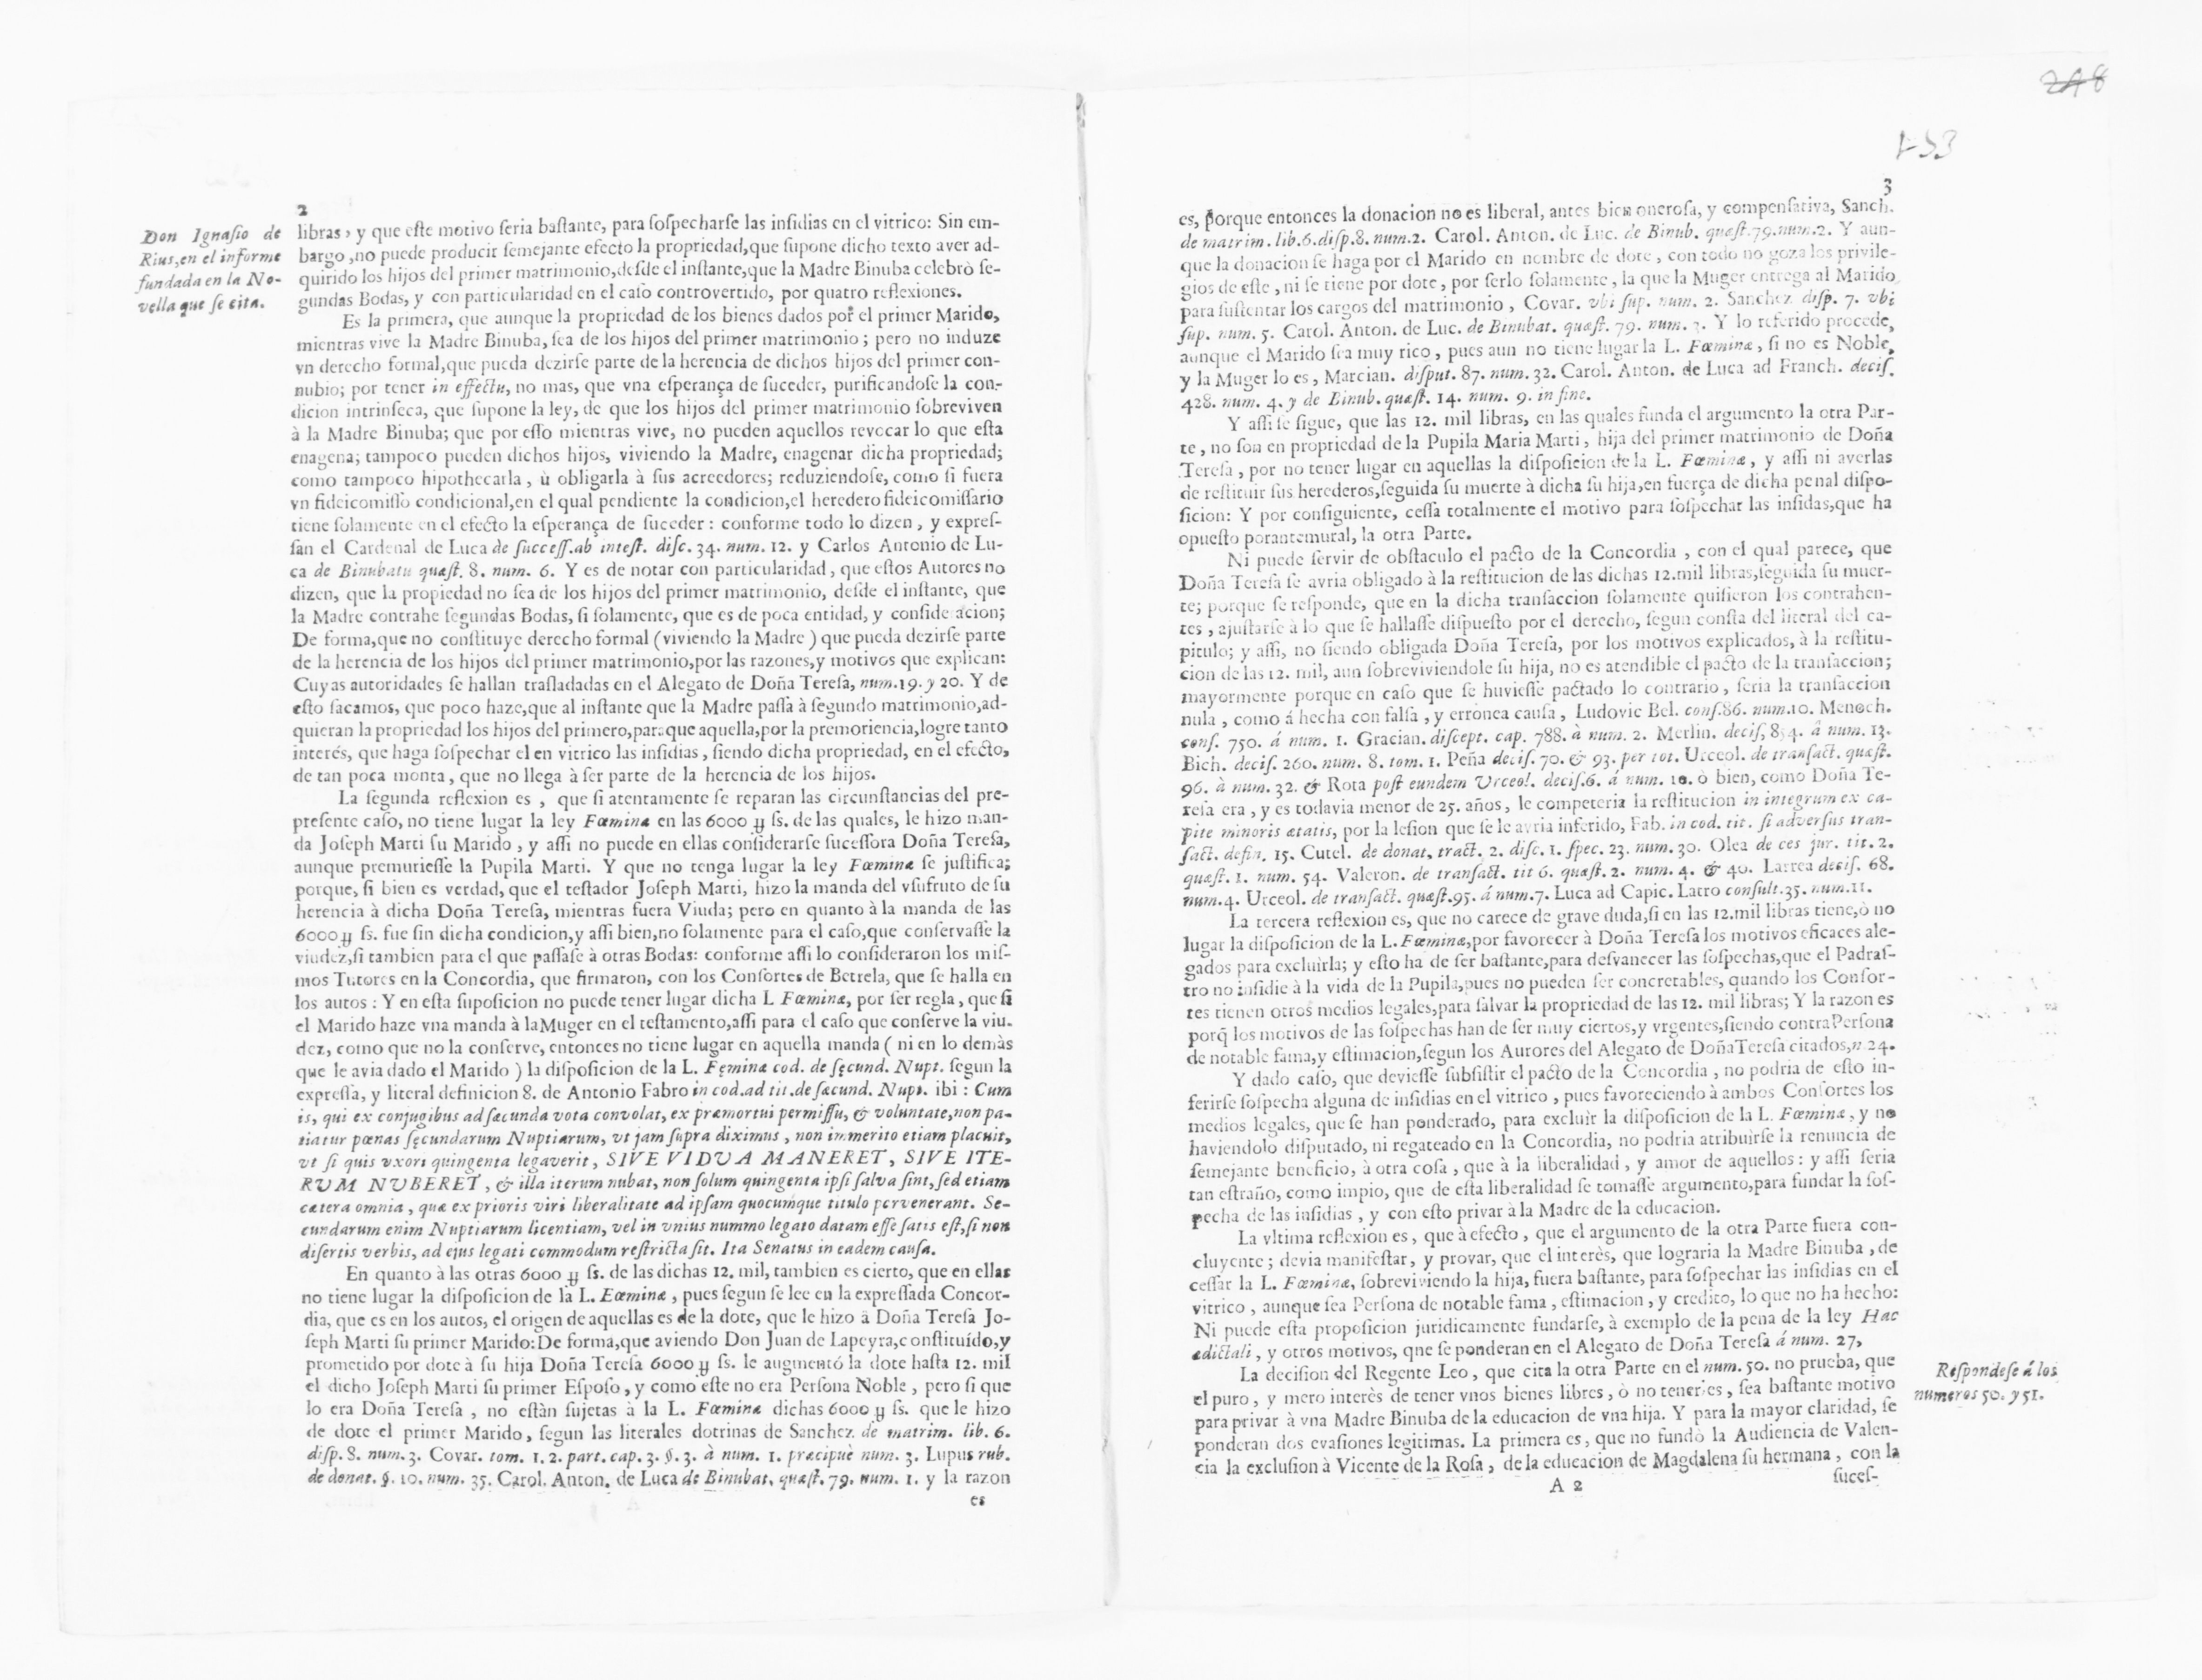 2
Don Ignaſio de
Rius, en el informe
fundada en la No-
vella que ſe cita.
libras, y que eſte motivo ſeria baſtante, para ſoſpecharſe las inſidias en el vitrico: Sin em-
bargo, no puede producir ſemejante efecto la propriedad, que ſupone dicho texto aver ad-
quirido los hijos del primer matrimonio, deſde el inſtante, que la Madre Binuba celebrò ſe-
gundas Bodas, y con particularidad en el caſo controvertido, por quatro reflexiones.
Es la primera, que aunque la propriedad de los bienes dados por el primer Marido,
mientras vive la Madre Binuba, ſea de los hijos del primer matrimonio; pero no induze
vn derecho formal, que pueda dezirſe parte de la herencia de dichos hijos del primer con-
nubio; por tener in effectu, no mas, que vna eſperança de ſuceder, purificandoſe la con-
dicion intrinſeca, que ſupone la ley, de que los hijos del primer matrimonio ſobreviven
à la Madre Binuba; que por eſſo mientras vive, no pueden aquellos revocar lo que eſta
enagena; tampoco pueden dichos hijos, viviendo la Madre, enagenar dicha propriedad;
como tampoco hipothecarla, ù obligarla à ſus acreedores; reduziendoſe, como ſi fuera
vn fideicomiſſo condicional, en el qual pendiente la condicion, el heredero fideicomiſſario
tiene ſolamente en el efecto la eſperança de ſuceder: conforme todo lo dizen, y expreſ-
ſan el Cardenal de Luca de ſucceſſ. ab inteſt. diſc. 34. num. 12. y Carlos Antonio de Lu-
ca de Binubatu quæſt. 8. num. 6. Y es de notar con particularidad, que eſtos Autores no
dizen, que la propiedad no ſea de los hijos del primer matrimonio, deſde el inſtante, que
la Madre contrahe ſegundas Bodas, ſi ſolamente, que es de poca entidad, y conſideracion;
De forma, que no conſtituye derecho formal (viviendo la Madre) que pueda dezirſe parte
de la herencia de los hijos del primer matrimonio, por las razones, y motivos que explican:
Cuyas autoridades ſe hallan traſladadas en el Alegato de Doña Tereſa, num. 19. y 20. Y de
eſto ſacamos, que poco haze, que al inſtante que la Madre paſſa à ſegundo matrimonio, ad-
quieran la propriedad los hijos del primero, para que aquella, por la premoriencia, logre tanto
interés, que haga ſoſpechar el en vitrico las inſidias, ſiendo dicha propriedad, en el efecto,
de tan poca monta, que no llega à ſer parte de la herencia de los hijos.
La ſegunda reflexion es, que ſi atentamente ſe reparan las circunſtancias del pre-
preſente caſo, no tiene lugar la ley Fœminæ en las 6000 ꝟ ſs. de las quales, le hizo man-
da Joſeph Marti ſu Marido, y aſſi no puede en ellas conſiderarſe ſuceſſora Doña Tereſa,
aunque premurieſſe la Pupila Marti. Y que no tenga lugar la ley Fœminæ ſe juſtifica;
porque, ſi bien es verdad, que el teſtador Joſeph Marti, hizo la manda del vſufruto de ſu
herencia à dicha Doña Tereſa, mientras fuera Viuda; pero en quanto à la manda de las
6000 ꝟ ſs. fue ſin dicha condicion, y aſſi bien, no ſolamente para el caſo, que conſervaſſe la
viudez, ſi tambien para el que paſſaſe à otras Bodas: conforme aſſi lo conſideraron los miſ-
mos Tutores en la Concordia, que firmaron, con los Conſortes de Betrela, que ſe halla en
los autos: Y en eſta ſupoſicion no puede tener lugar dicha L Fœminæ, por ſer regla, que ſi
el Marido haze vna manda à la Muger en el teſtamento, aſſi para el caſo que conſerve la viu-
dez, como que no la conſerve, entonces no tiene lugar en aquella manda (ni en lo demàs
que le avia dado el Marido) la diſpoſicion de la L. Fęminæ cod. de ſęcund. Nupt. ſegun la
expreſſa, y literal definicion 8. de Antonio Fabro in cod. ad tit. de ſæcund. Nupt. ibi: Cum
is, qui ex conjugibus ad ſæcunda vota convolat, ex præmortui permiſſu, & voluntate, non pa-
tiatur pœnas ſęcundarum Nuptiarum, vt jam ſupra diximus, non immerito etiam placuit,
vt ſi quis vxori quingenta legaverit, SIVE VIDUA MANERET, SIVE ITE-
RUM NUBERET, & illa iterum nubat, non ſolum quingenta ipſi ſalva ſint, ſed etiam
cætera omnia, quæ ex prioris viri liberalitate ad ipſam quocumque titulo pervenerant. Se-
cundarum enim Nuptiarum licentiam, vel in vnius nummo legato datam eſſe ſatis eſt, ſi non
diſertis verbis, ad ejus legati commodum reſtricta ſit. Ita Senatus in eadem cauſa.
En quanto à las otras 6000 ꝟ ſs. de las dichas 12. mil, tambien es cierto, que en ellas
no tiene lugar la diſpoſicion de la L. Eœminæ, pues ſegun ſe lee en la expreſſada Concor-
dia, que es en los autos, el origen de aquellas es de la dote, que le hizo à Doña Tereſa Jo-
ſeph Marti ſu primer Marido: De forma, que aviendo Don Juan de Lapeyra, conſtituído, y
prometido por dote à ſu hija Doña Tereſa 6000 ꝟ ſs. le augmentó la dote haſta 12. mil
el dicho Joſeph Marti ſu primer Eſpoſo, y como eſte no era Perſona Noble, pero ſi que
lo era Doña Tereſa, no eſtàn ſujetas à la L. Fœminæ dichas 6000 ꝟ ſs. que le hizo
de dote el primer Marido, ſegun las literales dotrinas de Sanchez de matrim. lib. 6.
diſp. 8. num. 3. Covar. tom. 1. 2. part. cap. 3. §. 3. à num. 1. præcipuè num. 3. Lupus rub.
de donat. §. 10. num. 35. Carol. Anton. de Luca de Binubat. quæſt. 79. num. 1. y la razon
es
248
3
es, porque entonces la donacion no es liberal, antes bien oneroſa, y compenſativa, Sanch.
de matrim. lib. 6. diſp. 8. num. 2. Carol. Anton. de Luc. de Binub. quæſt. 79. num. 2. Y aun-
que la donacion ſe haga por el Marido en nombre de dote, con todo no goza los privile-
gios de eſte, ni ſe tiene por dote, por ſerlo ſolamente, la que la Muger entrega al Marido
para ſuſtentar los cargos del matrimonio, Covar. vbi ſup. num. 2. Sanchez diſp. 7. vbi
ſup. num. 5. Carol. Anton. de Luc. de Binubat. quæſt. 79. num. 3. Y lo referido procede,
aunque el Marido ſea muy rico, pues aun no tiene lugar la L. Fœminæ, ſi no es Noble,
y la Muger lo es, Marcian. diſput. 87. num. 32. Carol. Anton. de Luca ad Franch. deciſ.
428. num. 4. y de Binub. quæſt. 14. num. 9. in fine.
Y aſſi ſe ſigue, que las 12. mil libras, en las quales funda el argumento la otra Par-
te, no ſon en propriedad de la Pupila Maria Marti, hija del primer matrimonio de Doña
Tereſa, por no tener lugar en aquellas la diſpoſicion de la L. Fœminæ, y aſſi ni averlas
de reſtituir ſus herederos, ſeguida ſu muerte à dicha ſu hija, en fuerça de dicha penal diſpo-
ſicion: Y por conſiguiente, ceſſa totalmente el motivo para ſoſpechar las inſidas, que ha
opueſto por antemural, la otra Parte.
Ni puede ſervir de obſtaculo el pacto de la Concordia, con el qual parece, que
Doña Tereſa ſe avria obligado à la reſtitucion de las dichas 12. mil libras, ſeguida ſu muer-
te; porque ſe reſponde, que en la dicha tranſaccion ſolamente quiſieron los contrahen-
tes, ajuſtarſe à lo que ſe hallaſſe diſpueſto por el derecho, ſegun conſta del literal del ca-
pitulo; y aſſi, no ſiendo obligada Doña Tereſa, por los motivos explicados, à la reſtitu-
cion de las 12. mil, aun ſobreviviendole ſu hija, no es atendible el pacto de la tranſaccion;
mayormente porque en caſo que ſe huvieſſe pactado lo contrario, ſeria la tranſaccion
nula, como á hecha con falſa, y erronea cauſa, Ludovic Bel. conſ. 86. num. 10. Menoch.
conſ. 750. á num. 1. Gracian. diſcept. cap. 788. à num. 2. Merlin. deciſ, 854. â num. 13.
Bich. deciſ. 260. num. 8. tom. 1. Peña deciſ. 70. & 93. per tot. Urceol. de tranſact. quæſt.
96. à num. 32. & Rota poſt eundem Urceol. deciſ. 6. á num. 10. ò bien, como Doña Te-
reſa era, y es todavia menor de 25. años, le competeria la reſtitucion in integrum ex ca-
pite minoris ætatis, por la leſion que ſe le avria inferido, Fab. in cod. tit. ſi adverſus tran-
ſact. defin. 15. Cutel. de donat. tract. 2. diſc. 1. ſpec. 23. num. 30. Olea de ces jur. tit. 2.
quæſt. 1. num. 54. Valeron. de tranſact. tit 6. quæſt. 2. num. 4. & 40. Larrea deciſ. 68.
num. 4. Urceol. de tranſact. quæſt. 95. á num. 7. Luca ad Capic. Latro conſult. 35. num. 11.
La tercera reflexion es, que no carece de grave duda, ſi en las 12. mil libras tiene, ò no
lugar la diſpoſicion de la L. Fœminæ, por favorecer à Doña Tereſa los motivos eficaces ale-
gados para excluìrla; y eſto ha de ſer baſtante, para deſvanecer las ſoſpechas, que el Padraſ-
tro no inſidie à la vida de la Pupila, pues no pueden ſer concretables, quando los Conſor-
tes tienen otros medios legales, para ſalvar la propriedad de las 12. mil libras; Y la razon es
porq̃ los motivos de las ſoſpechas han de ſer muy ciertos, y vrgentes, ſiendo contra Perſona
de notable fama, y eſtimacion, ſegun los Aurores del Alegato de Doña Tereſa citados, n 24.
Y dado caſo, que devieſſe ſubſiſtir el pacto de la Concordia, no podria de eſto in-
ferirſe ſoſpecha alguna de inſidias en el vitrico, pues favoreciendo à ambos Conſortes los
medios legales, que ſe han ponderado, para excluìr la diſpoſicion de la L. Fœminæ, y no
haviendolo diſputado, ni regateado en la Concordia, no podria atribuìrſe la renuncia de
ſemejante beneficio, à otra coſa, que à la liberalidad, y amor de aquellos: y aſſi ſeria
tan eſtraño, como impio, que de eſta liberalidad ſe tomaſſe argumento, para fundar la ſoſ-
pecha de las inſidias, y con eſto privar à la Madre de la educacion.
La vltima reflexion es, que à efecto, que el argumento de la otra Parte fuera con-
cluyente; devia manifeſtar, y provar, que el interès, que lograria la Madre Binuba, de
ceſſar la L. Fœminæ, ſobreviviendo la hija, fuera baſtante, para ſoſpechar las inſidias en el
vitrico, aunque ſea Perſona de notable fama, eſtimacion, y credito, lo que no ha hecho:
Ni puede eſta propoſicion juridicamente fundarſe, à exemplo de la pena de la ley Hac
edictali, y otros motivos, que ſe ponderan en el Alegato de Doña Tereſa á num. 27,
La deciſion del Regente Leo, que cita la otra Parte en el num. 50. no prueba, que
el puro, y mero interès de tener vnos bienes libres, ò no tenerles, ſea baſtante motivo
para privar à vna Madre Binuba de la educacion de vna hija. Y para la mayor claridad, ſe
ponderan dos evaſiones legitimas. La primera es, que no fundò la Audiencia de Valen-
cia la excluſion à Vicente de la Roſa, de la educacion de Magdalena ſu hermana, con la
Reſpondeſe á los
numeros 50. y 51.
A 2
ſuceſ-